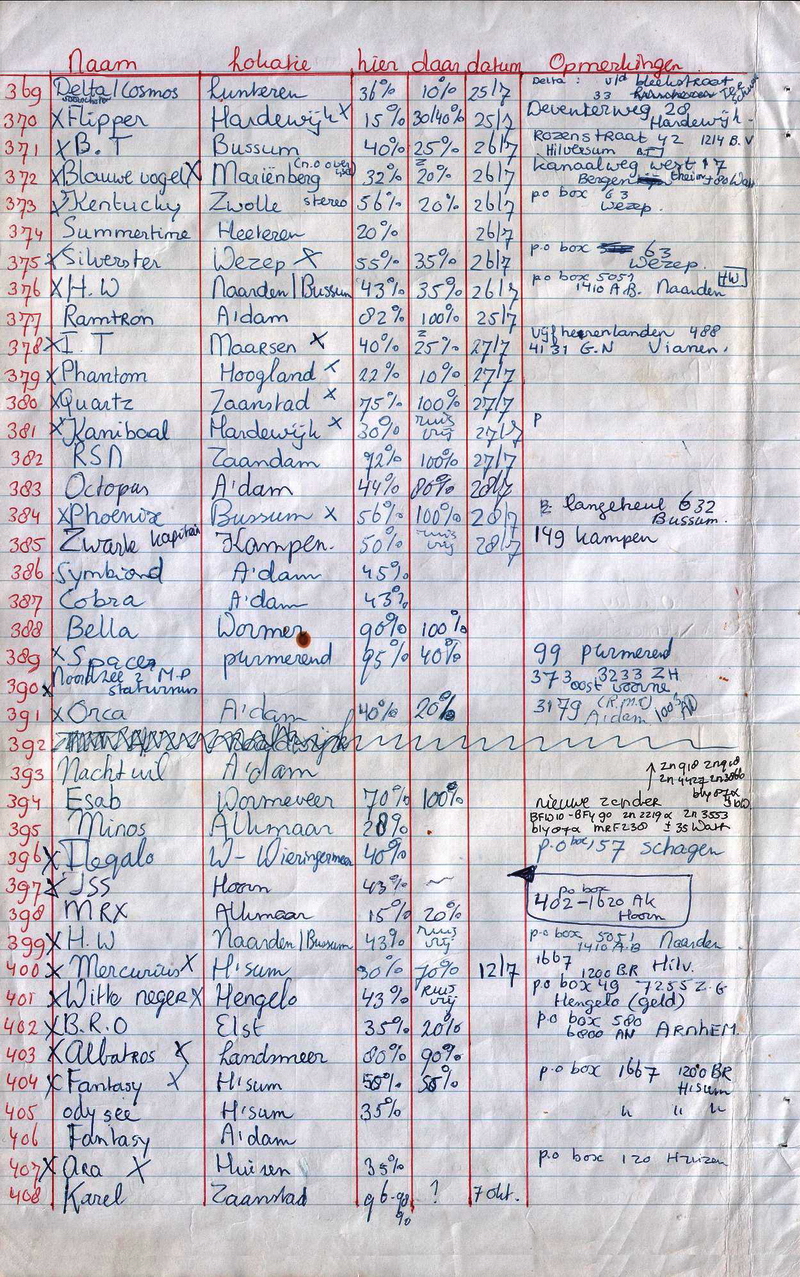 Naam lokatie hier daar datum Opmerkingen
369 Delta/Cosmos Lunteren 36% 10% 25/7 Delta: v/d bleekstraat 33
370 X Flipper Hardewijk X 15% 30/40% 25/7 Deventerweg 28 Hardewijk -
371 X B.T Bussum 40% 25% 26/7 Rozenstraat 42 1214 B.V Hilversum BT
372 X Blauwe vogel X Mariënberg 32% 20% 26/7 kanaalweg west 17 Bergentheim
373 X Kentucky Zwolle stereo 56% 20% 26/7 po box 63 Wezep.
374 Summertime Heeteren 20% 26/7
375 X Silverster Wezep X 55% 35% 26/7 p.o box 63 Wezep.
376 X H.W Naarden/Bussum 43% 35% 26/7 po box 5051 1410 A.B. Naarden HW
377 Ramtron A'dam 82% 100% 25/7
378 X I.T Maarsen X 40% 25% 27/7 Vijfheerenlanden 488 4131 G.N Vianen.
379 X Phantom Hoogland X 22% 10% 27/7
380 X Quartz Zaanstad X 75% 100% 27/7
381 X Kaniboal Hardewijk X 30% ruis vrij 27/7 P
382 RSN Zaandam 92% 100% 27/7
383 Octopus A'dam 44% 80% 28/7
384 X Phoenix Bussum X 56% 100% 28/7 langeheul 632 Bussum.
385 Zwarte kapitein Kampen. 50% ruis vrij 28/7 149 kampen
386 Symbiond A'dam 45%
387 Cobra A'dam 43%
388 Bella Wormer 90% 100%
389 X Spacer purmerend 95% 40% 99 purmerend
390 X Noordzee 2 M.P staturnus 373 3233 ZH oost voorne
391 X Orca A'dam 40% 20% 3179 (R.M.C) A'dam 100% AD
392
393 Nachtuil A'dam
394 Esab Wormeveer 70% 100% nieuwe zender
395 Minos Alkmaar 28% BFW10 - BFY90 2n 2219 a 2n 3553 bly 87a MRF238 ± 35 Watt
396 X Ilegalo W-Wieringermeer 40% p.o box 157 schagen
397 X JSS Hoorn 43% ~ po box 402-1620 AK Hoorn
398 MRX Alkmaar 15% 20%
399 X H.W Naarden/Bussum 43% ruis vrij p.o box 5051 1410 A.B Naarden
400 X Mercurius X H'sum 30% 70% 12/7 1667 1200 BR Hilv.
401 X Witte neger X Hengelo 43% ruis vrij po box 49 7255 Z.G Hengelo (geld)
402 X B.R.O Elst 35% 20% p.o box 580 6800 AN ARNHEM.
403 X Albatros X Landsmeer 80% 90%
404 X Fantasy X H'sum 50% 55% p.o box 1667 1200 BR H'sum
405 odysee H'sum 35% " " "
406 Fantasy A'dam
407 X Ara X Huisen 35% p.o box 120 Huizen
408 Karel Zaanstad 96-98 % ? 7 okt.